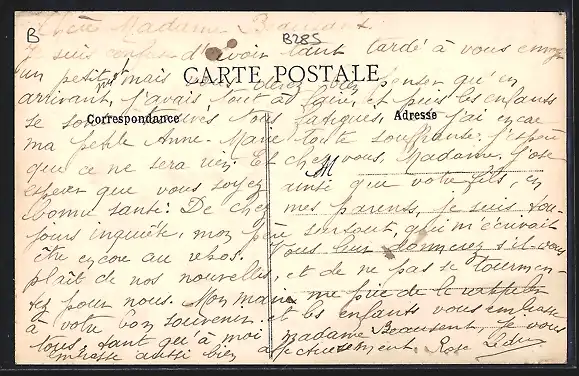 B
B285
Chère Madame Beausant.
Je suis confuse d'avoir tant tardé à vous envoyer
un petit mot mais vous devez bien penser qu'en
CARTE POSTALE
arrivant, j'avais tout à faire, et puis les enfants
Correspondance
Adresse
se sont tous fatigués, j'ai encore
ma petite Anne-Marie toute souffrante: j'espère
que ce ne sera rien. Et chez vous, Madame, j'ose
M
espérer que vous soyez ainsi que votre fils, en
bonne santé: De chez mes parents, je suis tou-
jours inquiète, mon père surtout, qui m'écrivait
être encore au repos. Vous leur donnerez s'il-vous
plaît de nos nouvelles, et de ne pas se tourmen-
ter pour nous. Mon mari me prie de le rappeler
à votre bon souvenir et les enfants vous embrasse
tous, tant qu'à moi madame Beausent, je vous
embrasse aussi bien affectueusement. Rose